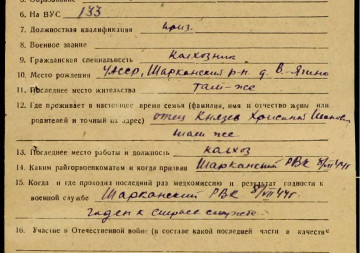 6. На ВУС 133
7. Должностная квалификация приз.
8. Военное звание
9. Гражданская специальность Колхозник
10. Место рождения УАССР, Шарканский р-н д. В-Япино
11. Последнее место жительства там-же
12. Где проживает в настоящее время семья (фамилия, имя и отчество жены или
родителей и точный их адрес) отец Князев
там же
13. Последнее место работы и должность колхоз
14. Каким райгорвоенкоматом и когда призван Шарканский РВК 8/VIII 44г.
15. Когда и где проходил последний раз медкомиссию и результат годности к
военной службе Шарканский РВК 8/VIII 44г.
годен к строев службе
16. Участие в Отечественной войне (в составе какой последней части и в качестве